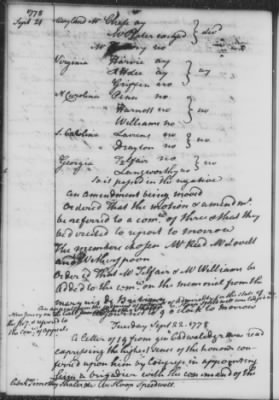 1778
Sept 21
Maryland Mr Chase ay
Mr Plater excused } divd
Mr Henry no
Virginia Harvie ay
R H Lee ay } ay
Griffin no
N Carolina Penn no
Harnett no } no
Williams no
S. Carolina Laurens no
Drayton no } no
Georgia Telfair no
Langworthy no } no
So it passed in the negative
An amendment being moved
Ordered that the motion & amendmt
be referred to a comee of three & that they
be directed to report to morrow
The members chosen Mr Read Mr Lovell
and Witherspoon
Ordered that Mr Telfair & Mr Williams be
added to the comee on the memorial from the
the state of
New Jersey
referred to
the Comee of appeals
o'Clock to morrow
Tuesday Septr 22. 1778
A letter of 19 from genl Cadwalader was read
expressing the highest sense of the honour con-
ferred upon him by Congress in appointing
him a brigadier with the command of the